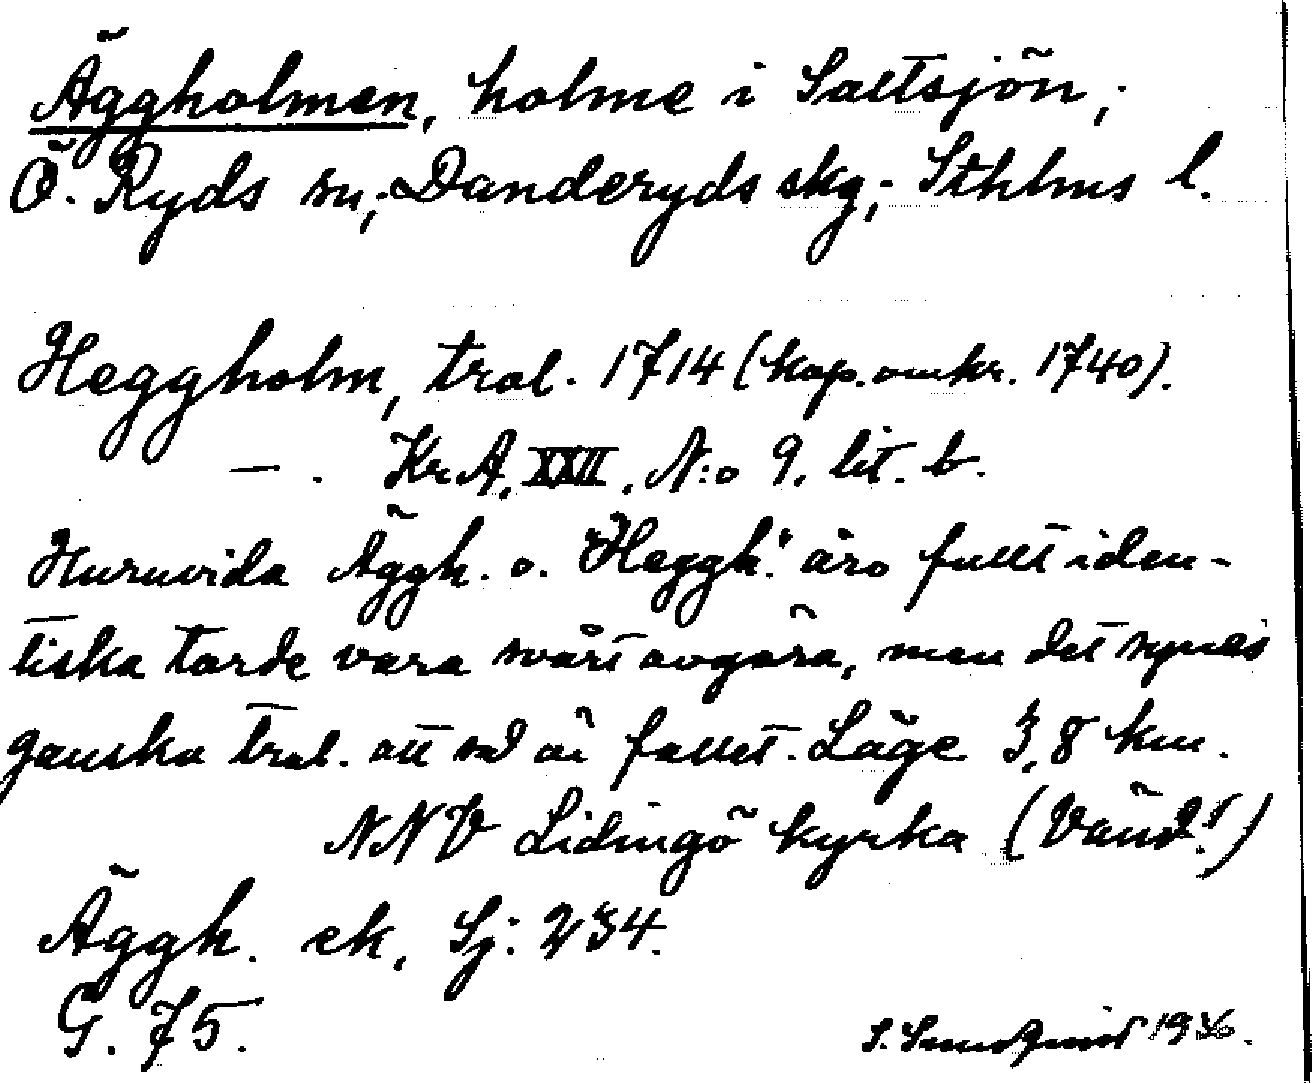 Äggholmen, holme i Saltsjön,
Ö. Ryds sn, Danderyds skg, Sthlms l.
Heggholm, trol. 1714 (kop. omkr. 1740).
— . Kr.A. XXII. N:o 9. lit. b.
Huruvida Äggh. o. "Heggh." äro fullt iden-
tiska torde vara svårt avgöra, men det synes
ganska trol. att så är fallet. Läge 3,8 km.
NNV Lidingö kyrka (Vänd!)
Äggh. ek. Sj: 234.
G. 75.
S. 1936.